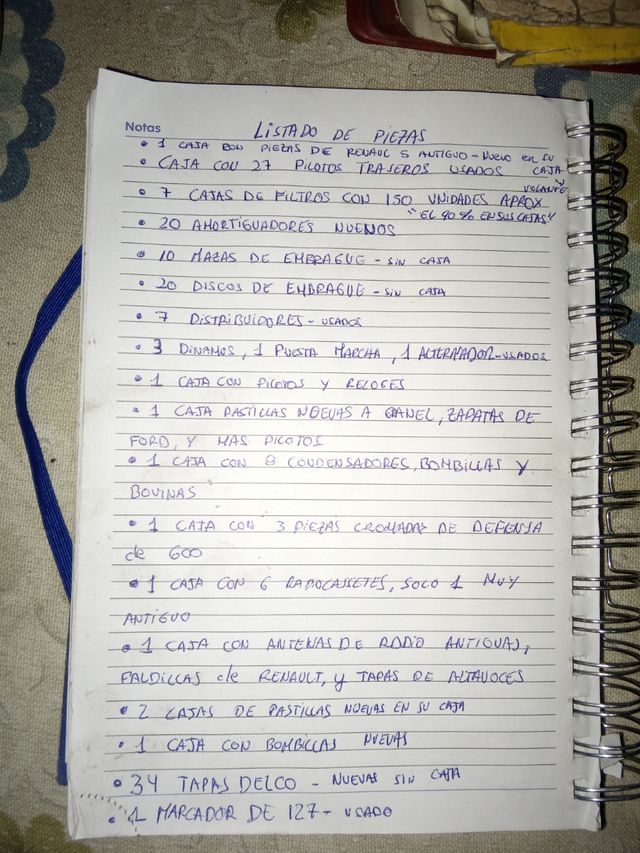 Notas
LISTADO DE PIEZAS
• 1 CAJA CON PIEZAS DE RENAUL 5 ANTIGUO - NUEVO en su CAJA
Y VOLANTE
• CAJA CON 27 PILOTOS TRASEROS USADOS
• 7 CAJAS DE FILTROS CON 150 UNIDADES APROX
"EL 90% EN SUS CAJAS"
• 20 AMORTIGUADORES NUEVOS
• 10 MAZAS DE EMBRAGUE - SIN CAJA
• 20 DISCOS DE EMBRAGUE - SIN CAJA
• 7 DISTRIBUIDORES - USADOS
• 3 DINAMOS, 1 PUESTA MARCHA, 1 ALTERNADOR - USADOS
• 1 CAJA CON PILOTOS Y RELOGES
• 1 CAJA PASTILLAS NUEVAS A GANEL, ZAPATAS DE
FORD, Y MAS PILOTOS
• 1 CAJA CON 8 CONDENSADORES, BOMBILLAS Y
BOVINAS
• 1 CAJA CON 3 PIEZAS CROMADAS DE DEFENSA
de 600
• 1 CAJA CON 6 RADOCASSETES, SOLO 1 MUY
ANTIGUO
• 1 CAJA CON ANTENAS DE RADIO ANTIGUAS,
FALDILLAS de RENAULT, Y TAPAS DE ALTAVOCES
• 2 CAJAS DE PASTILLAS NUEVAS EN SU CAJA
• 1 CAJA CON BOMBILLAS NUEVAS
• 34 TAPAS DELCO - NUEVAS SIN CAJA
• 1 MARCADOR DE 127 - USADO